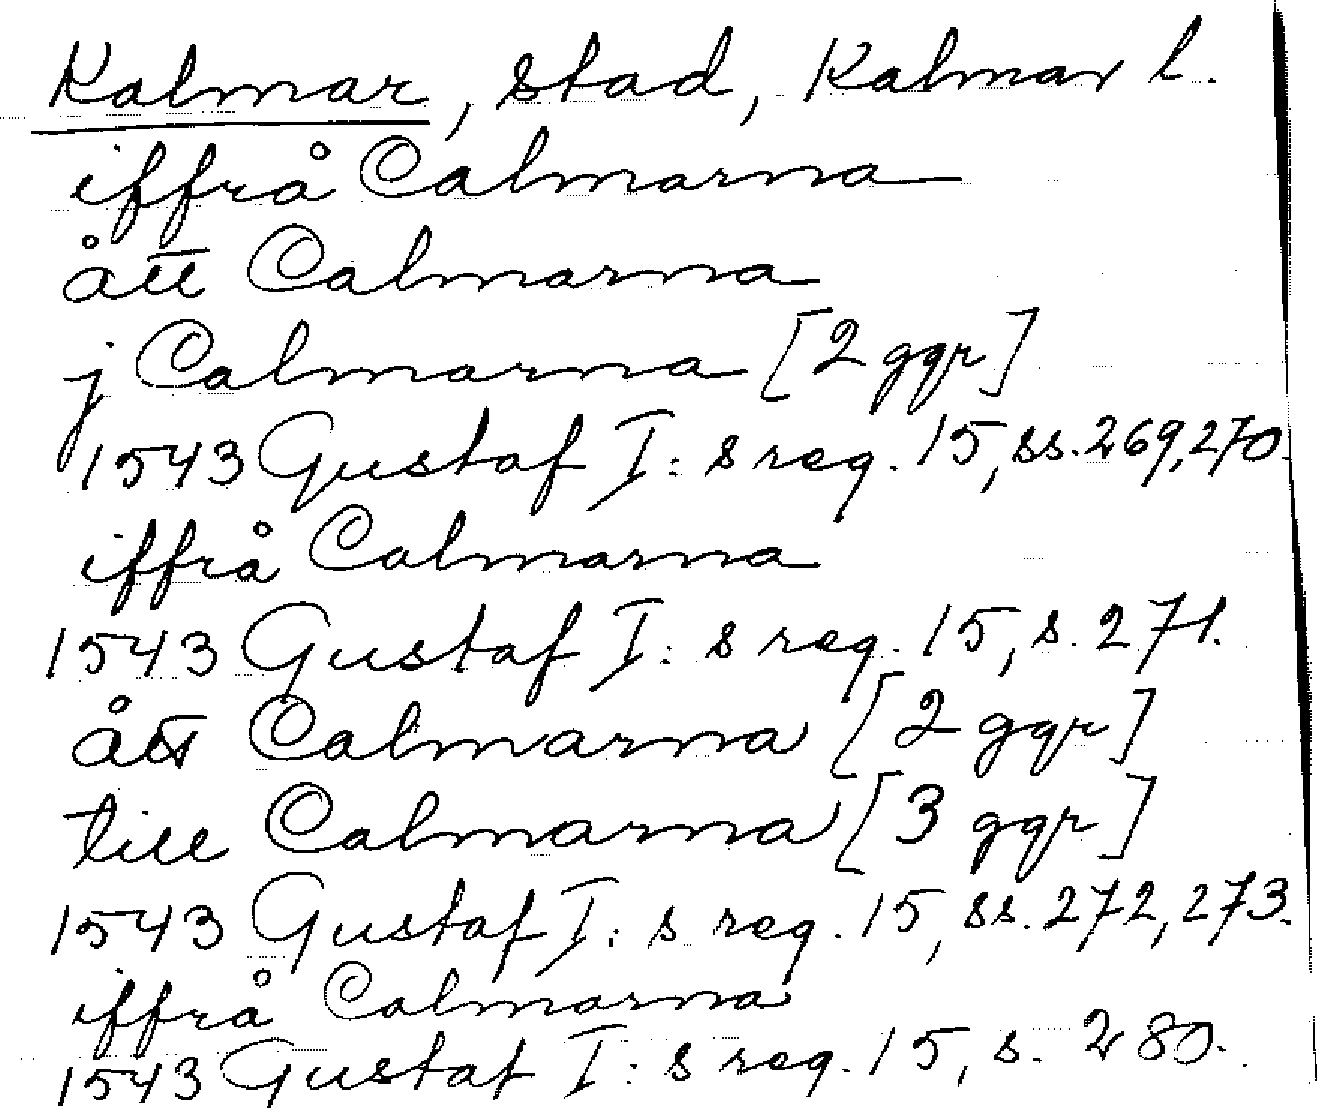 Kalmar, stad, Kalmar l.
iffrå Calmarna
ått Calmarna
j Calmarna [2 ggr]
1543 Gustaf I:s reg. 15, ss. 269, 270.
iffrå Calmarna
1543 Gustaf I:s reg. 15, s. 271.
ått Calmarna [2 ggr]
till Calmarna [3 ggr]
1543 Gustaf I:s reg. 15, ss. 272, 273.
iffrå Calmarna
1543 Gustaf I:s reg. 15, s. 280.